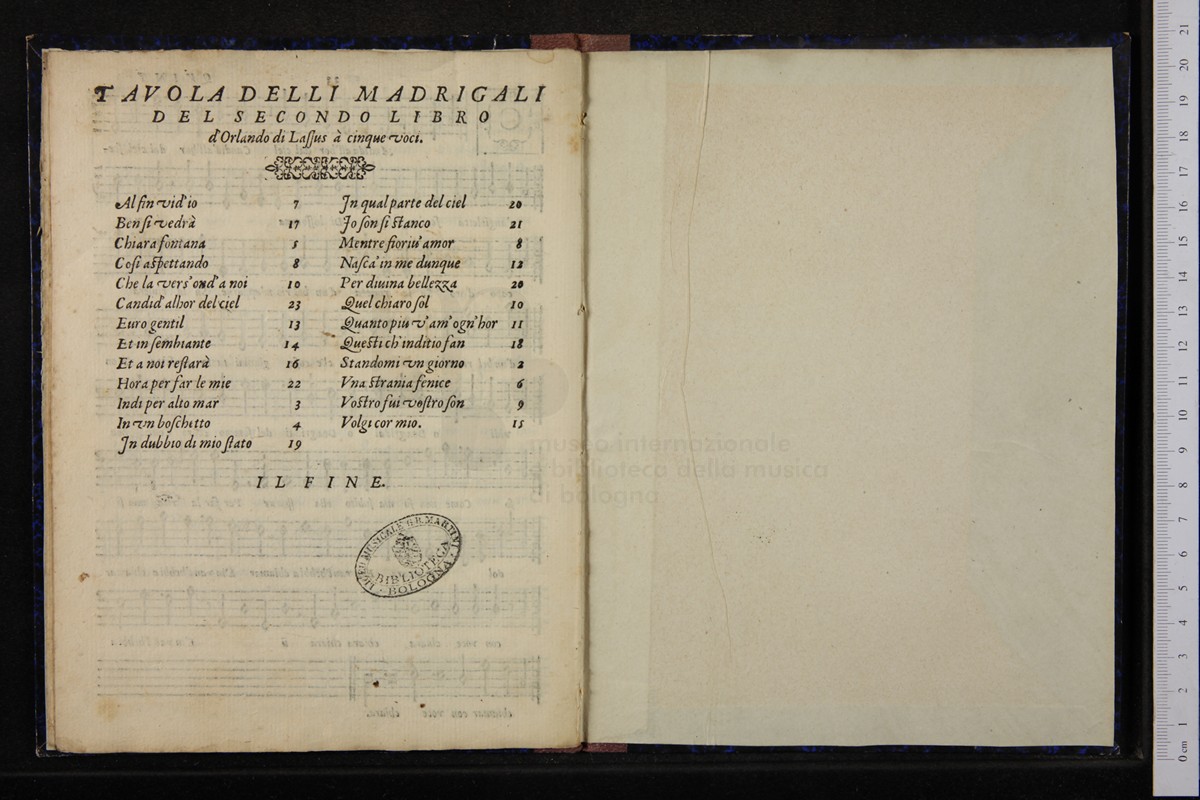 TAVOLA DELLI MADRIGALI
DEL SECONDO LIBRO
d'Orlando di Laſſus à cinque voci.
Al fin vid'io 7
Ben ſi vedrà 17
Chiara fontana 5
Coſi aſpettando 8
Che la vers' ond'a noi 10
Candid' alhor del ciel 23
Euro gentil 13
Et in ſembiante 14
Et a noi reſtarà 16
Hora per far le mie 22
Indi per alto mar 3
In vn boſchetto 4
In dubbio di mio ſtato 19
In qual parte del ciel 20
Io ſon ſi ſtanco 21
Mentre fioriu' amor 8
Naſca' in me dunque 12
Per diuina bellezza 20
Quel chiaro ſol 10
Quanto piu v' am' ogn' hor 11
Queſti ch' inditio fan 18
Standomi vn giorno 2
Vna ſtrania fenice 6
Voſtro fui voſtro ſon 9
Volgi cor mio. 15
IL FINE.
LICEO MUSICALE G.B. MARTINI
BIBLIOTECA
BOLOGNA
museo internazionale
e biblioteca della musica
di bologna
0 cm 1 2 3 4 5 6 7 8 9 10 11 12 13 14 15 16 17 18 19 20 21